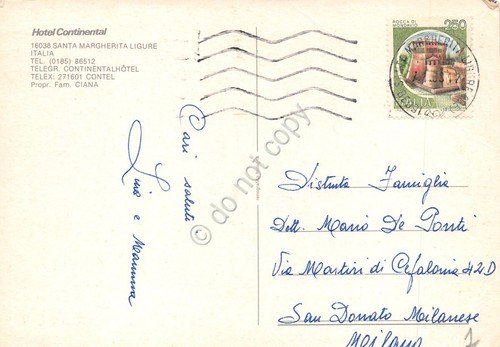 Hotel Continental
16038 SANTA MARGHERITA LIGURE
ITALIA
TEL. (0185) 86512
TELEGR. CONTINENTALHÔTEL
TELEX: 271601 CONTEL
Propr. Fam. CIANA
ROCCA DI
MONDAVIO
250
ITALIA
MARGHERITA LIGURE
Cari saluti
Lina e Mamma
do not copy
Distinta Famiglia
Dott. Mario De Ponti
Via Martiri di Cefalonia 42 D
San Donato Milanese
Milano
1